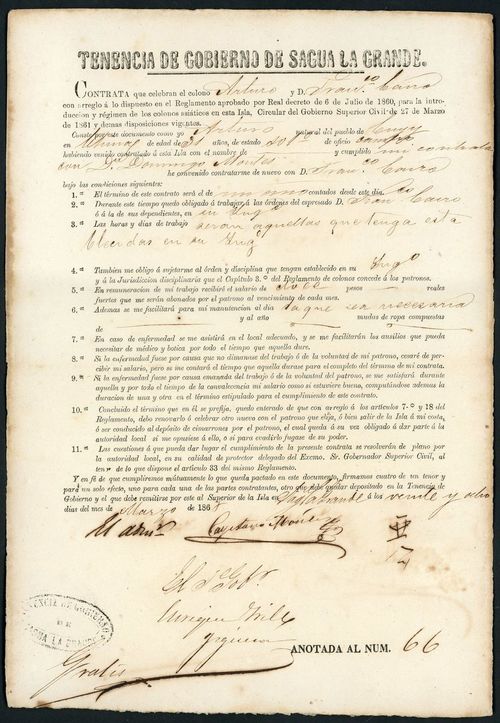 TENENCIA DE GOBIERNO DE SAGUA LA GRANDE.
CONTRATA que celebran el colono Arturo y D. Fran.co Cairo
con arreglo á lo dispuesto en el Reglamento aprobado por Real decreto de 6 de Julio de 1860, para la introduc-
cion y régimen de los colonos asiáticos en esta Isla, Circular del Gobierno Superior Civil de 27 de Marzo
de 1861 y demas disposiciones vigentes.
Conste por este documento como yo Arturo natural del pueblo de
en de edad de 30 años, de estado solt.o de oficio campo
habiendo venido contratado á esta Isla con el nombre de y cumplido mi contrata
con D.n Domingo Montes he convenido contratarme de nuevo con D. Fran.co Cairo
bajo las condiciones siguientes:
1.ª El término de este contrato será de un año contados desde este dia
2.ª Durante este tiempo quedo obligado á trabajar á las órdenes del espresado D. Fran.co Cairo
ó á la de sus dependientes, en su Ing.o
3.ª Las horas y dias de trabajo seran aquellas que tenga esta
blecidas en su Ing.o
4.ª Tambien me obligo á sujetarme al órden y disciplina que tengan establecido en su Ing.o
y á la Jurisdiccion disciplinaria que el Capítulo 3.º del Reglamento de colonos concede á los patronos.
5.ª En remuneracion de mi trabajo recibiré el salario de doce pesos reales
fuertes que me serán abonados por el patrono al vencimiento de cada mes.
6.ª Ademas se me facilitará para mi manutencion al dia la que sea necesaria
y al año mudas de ropa compuestas
de
7.ª En caso de enfermedad se me asistirá en el local adecuado, y se me facilitarán los ausilios que pueda
necesitar de médico y botica por todo el tiempo que aquella dure.
8.ª Si la enfermedad fuese por causa que no dimanase del trabajo ó de la voluntad de mi patrono, cesaré de per-
cibir mi salario, pero se me contará el tiempo que aquella durase para el completo del término de mi contrata.
9.ª Si la enfermedad fuese por causa emanada del trabajo ó de la voluntad del patrono, se me satisfará durante
aquella y por todo el tiempo de la convalescencia mi salario como si estuviere bueno, computándose ademas la
duracion de una y otra en el término estipulado para el cumplimiento de este contrato.
10.ª Concluido el término que en él se prefija, quedo enterado de que con arreglo á los artículos 7.º y 18 del
Reglamento, debo renovarlo ó celebrar otro nuevo con el patrono que elija, ó bien salir de la Isla á mi costa,
ó ser conducido al depósito de cimarrones por el patrono, el cual queda á su vez obligado á dar parte á la
autoridad local si me opusiese á ello, ó si para evadirlo fugase de su poder.
11.ª Las cuestiones á que pueda dar lugar el cumplimiento de la presente contrata se resolverán de plano por
la autoridad local, en su calidad de protector delegado del Excmo. Sr. Gobernador Superior Civil, al
tenor de lo que dispone el artículo 33 del mismo Reglamento.
Y en fé de que cumpliremos mútuamente lo que queda pactado en este documento, firmamos cuatro de un tenor y
para un solo efecto, uno para cada una de las partes contratantes, otro que debe quedar depositado en la Tenencia de
Gobierno y el que debe remitirse por este al Superior de la Isla en Sagua la Grande á los veinte y ocho
dias del mes de Marzo de 186
El adm.or Cayetano
El T.e Gob.r
Enrique
TENENCIA DE GOBIERNO
DE
SAGUA LA GRANDE
Gratis
ANOTADA AL NUM. 66